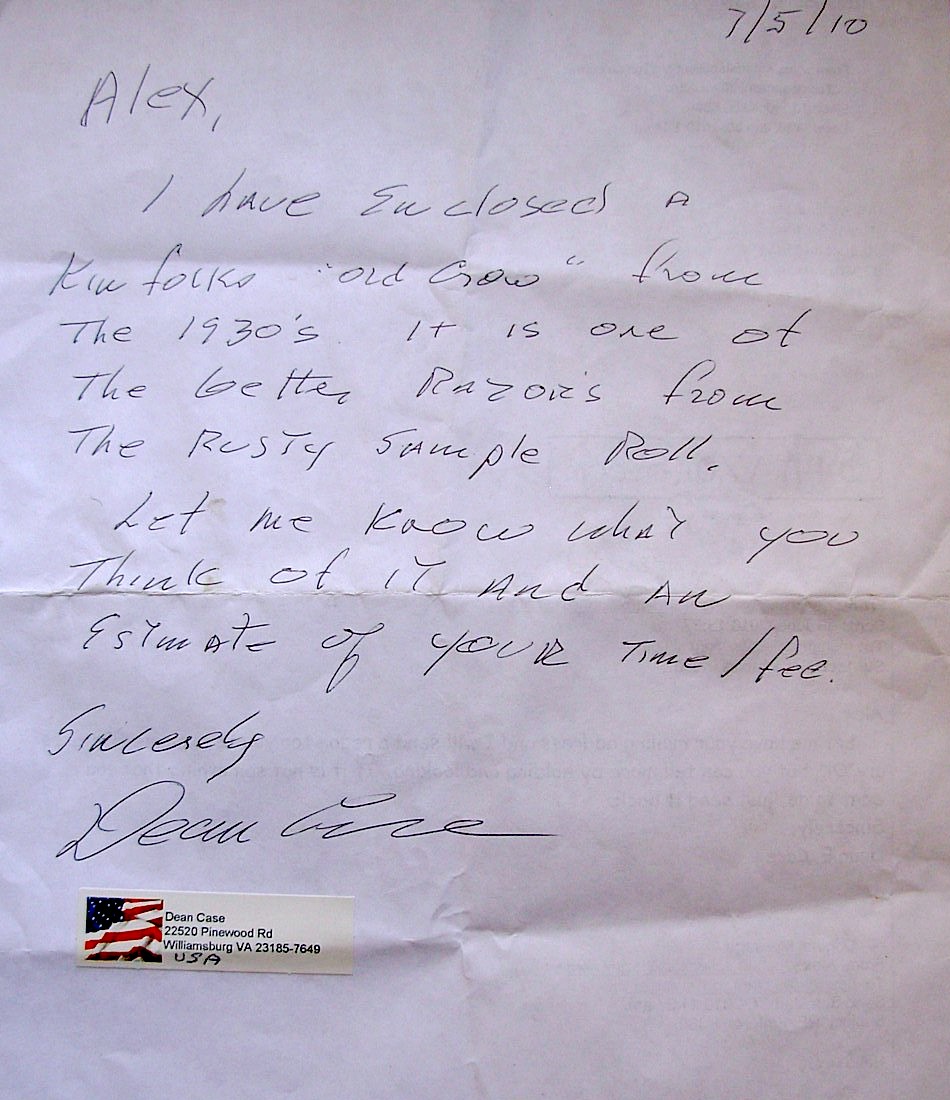 7/5/10
Alex,
I have Enclosed a
Kinfolks "old Crow" from
The 1930's. It is one of
The better Razor's from
The Rusty Sample Roll.
Let me know what you
Think of it and an
Estimate of your Time/fee.
Sincerely
Dean Case
Dean Case
22520 Pinewood Rd
Williamsburg VA 23185-7649
USA